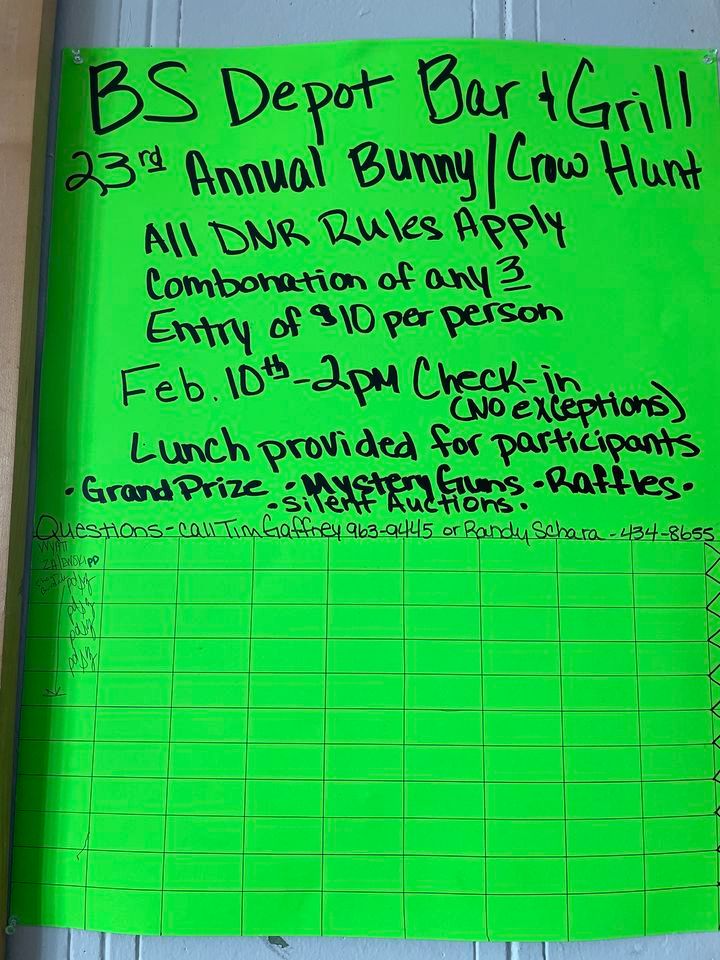 BS Depot Bar & Grill
23rd Annual Bunny/Crow Hunt
All DNR Rules Apply
Combonation of any 3
Entry of $10 per person
Feb. 10th - 2pm Check-in
(No exceptions)
Lunch provided for participants
• Grand Prize • Mystery Guns • Raffles •
• Silent Auctions •
Questions - call Tim Gaffney 963-9445 or Randy Schara - 434-8655
WYATT